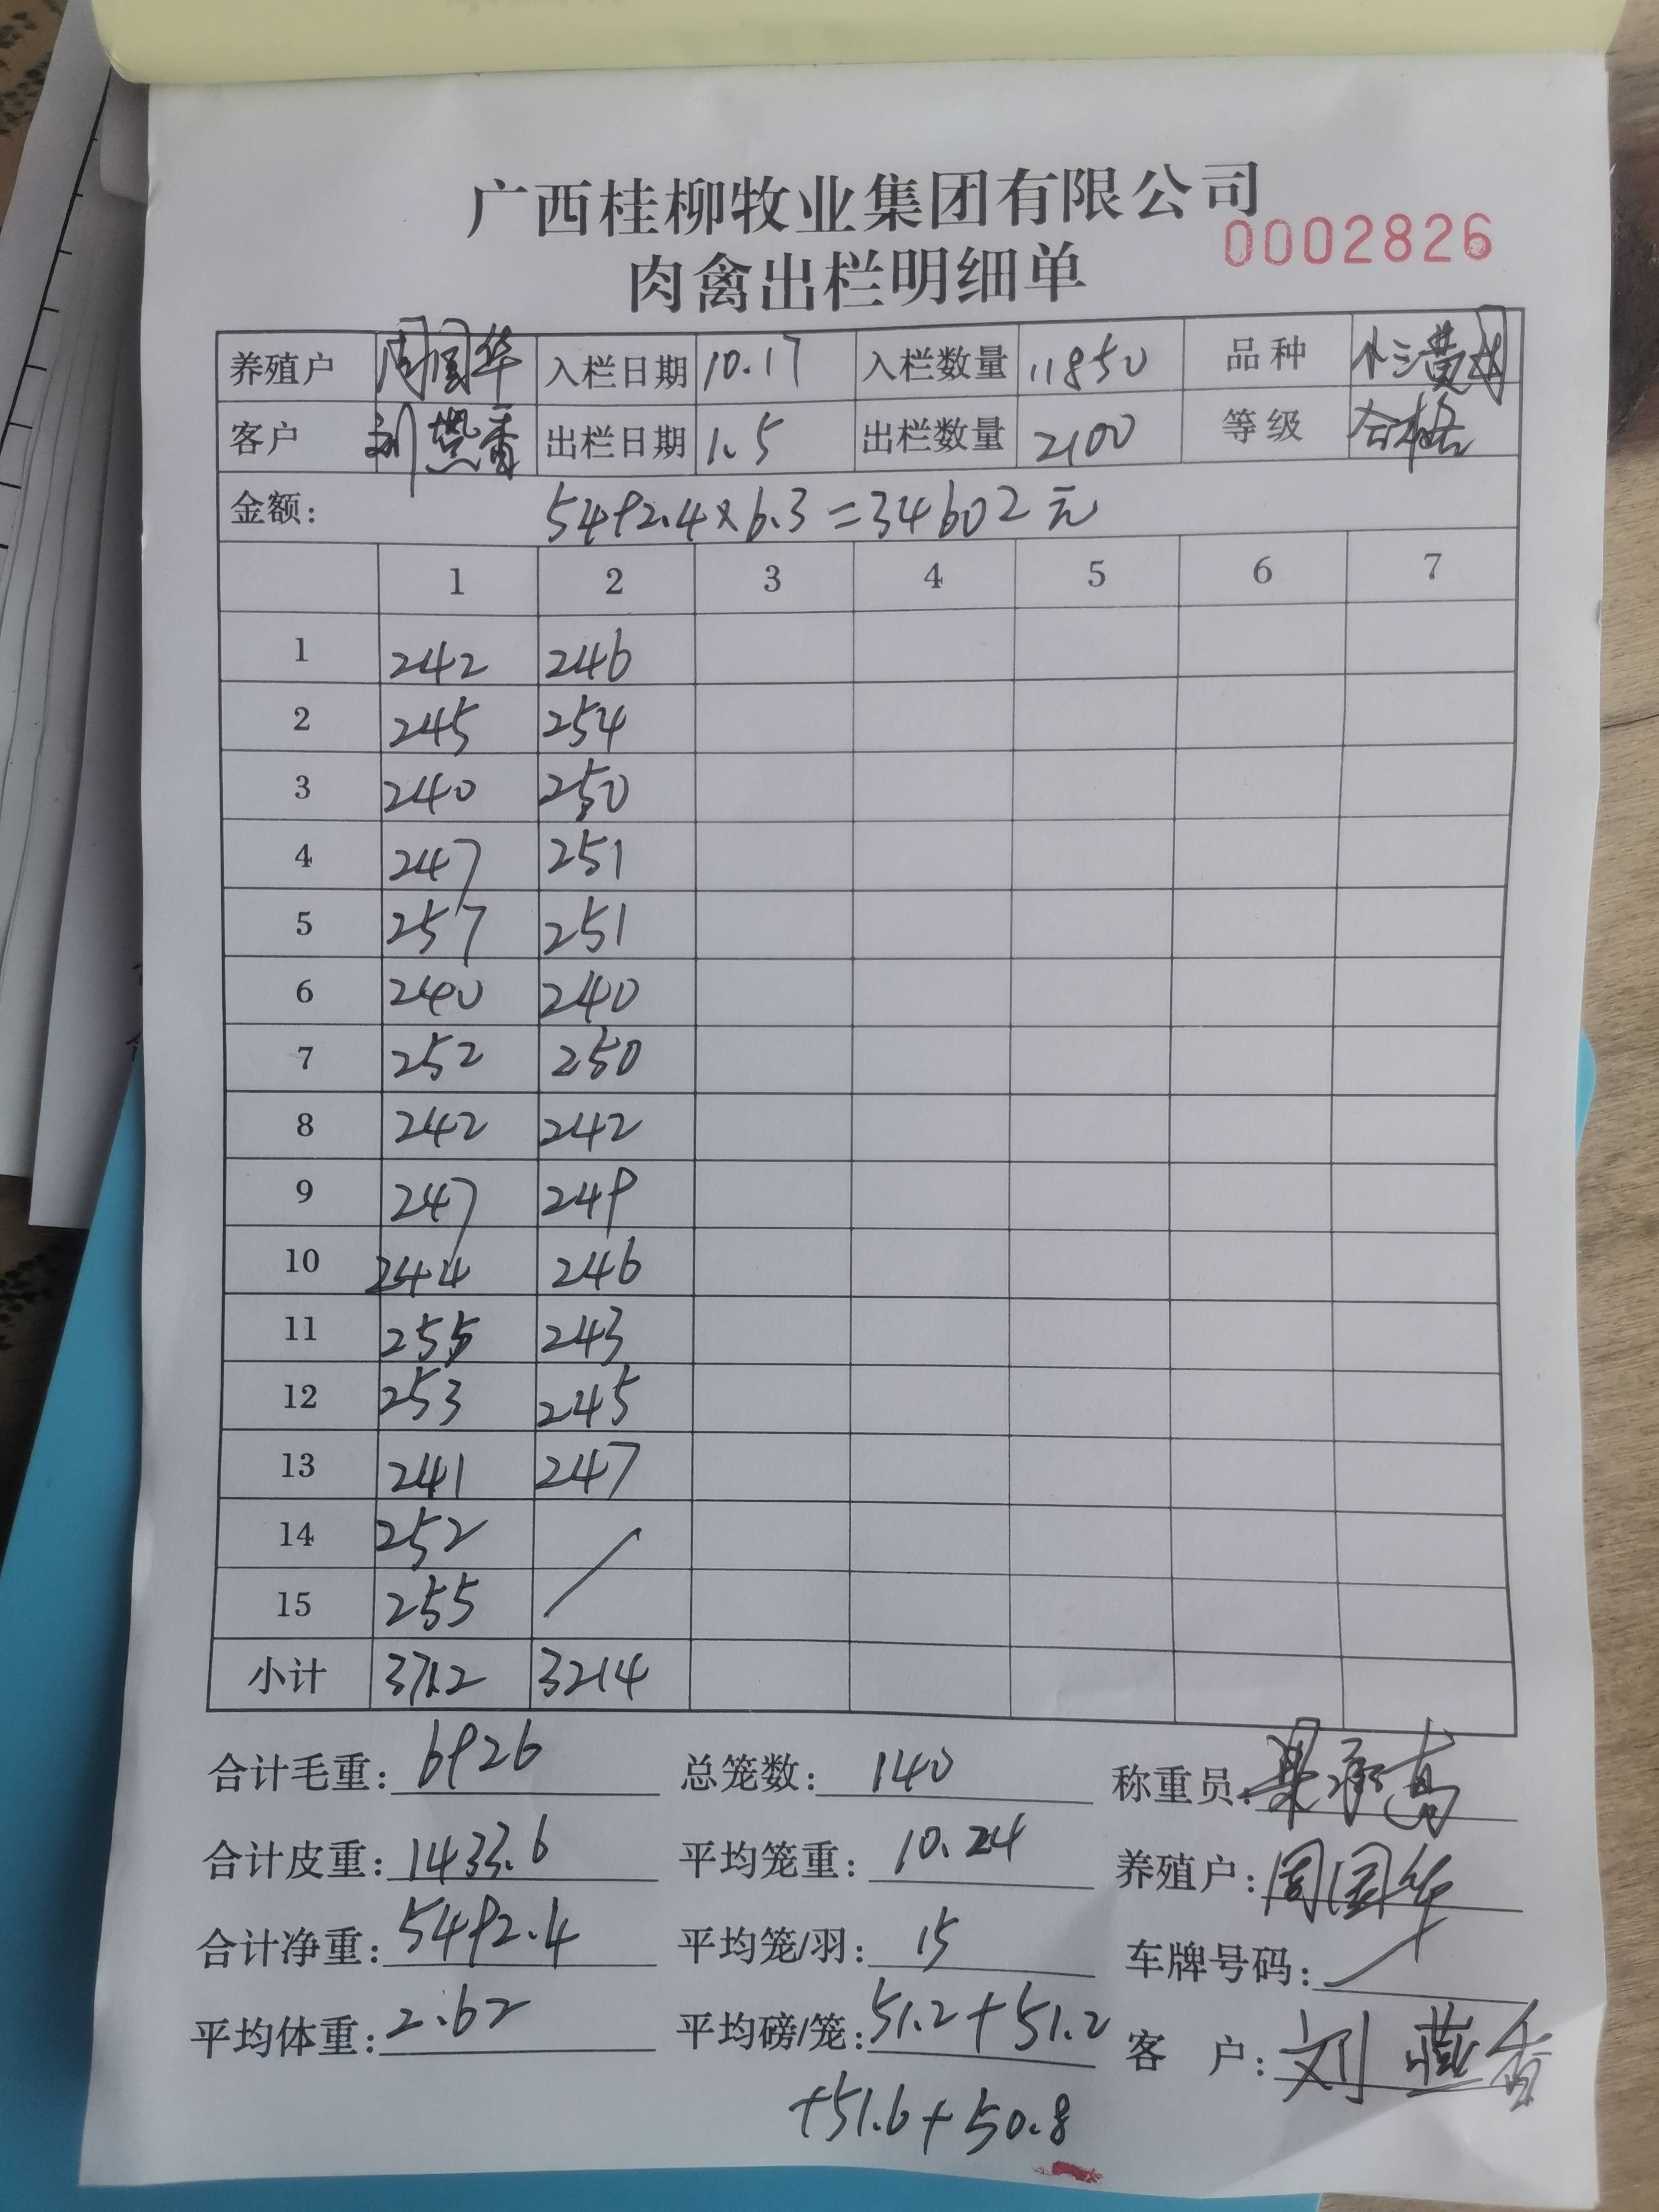 广西桂柳牧业集团有限公司
0002826
肉禽出栏明细单
养殖户 周国华 入栏日期 10.17 入栏数量 11850 品种 小三黄
客户 刘燕香 出栏日期 1.5 出栏数量 2100 等级 合格
金额: 5492.4×6.3=34602元
1 2 3 4 5 6 7
1 242 246
2 245 254
3 240 250
4 247 251
5 257 251
6 240 240
7 252 250
8 242 242
9 247 249
10 244 246
11 255 243
12 253 245
13 241 247
14 252
15 255
小计 3712 3214
合计毛重: 6926 总笼数: 140 称重员:
合计皮重: 1433.6 平均笼重: 10.24 养殖户: 周国华
合计净重: 5492.4 平均笼/羽: 15 车牌号码:
平均体重: 2.62 平均磅/笼: 51.2+51.2 客 户: 刘燕香
+51.6+50.8